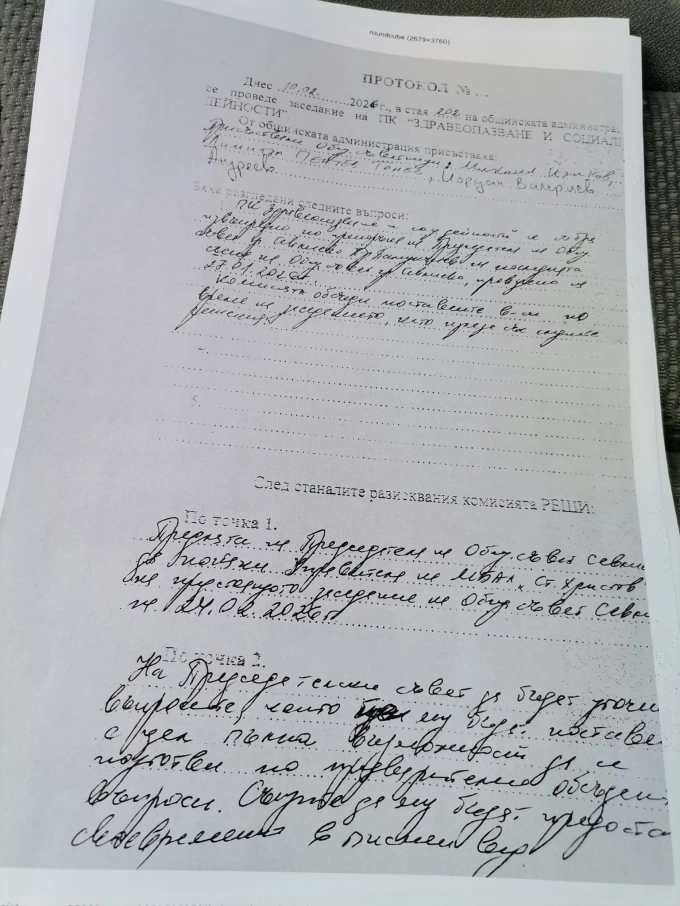 roundcube (2679×3760)
ПРОТОКОЛ № ...
Днес 10.02. 2026 г., в стая 202 на общинската администрац
се проведе заседание на ПК "ЗДРАВЕОПАЗВАНЕ И СОЦИАЛ
ДЕЙНОСТИ".
От общинската администрация присъстваха:
Присъствали Общ. съветници: Михаил
Димитър Пенчев Тонев, Йордан
Андреев
Бяха разгледани следните въпроси:
ПК Здравеопазване и соц. дейности се
извънредно по на Председателя на Общ.
съвет гр. Севлиево на последната
сесия на Общ. съвет гр. Севлиево, проведена на
27.01.2026 г.
Комисията обсъди поставените в-си по
време на заседанието, като прие със следните
решения:
2
3
След станалите разисквания комисията РЕШИ:
По точка 1.
Предлага на Председателя на Общ. съвет Севли
да покани Управителя на МБАЛ „Ст. Христов
на предстоящото заседание на Общ. съвет Севли
на 24.02.2026 г.
По точка 2.
На Председателския съвет да бъдат уточн
въпросите, които ще му бъдат поставе
с цел пълна възможност да се
подготви по предварително обсъден
въпроси. Същите да му бъдат предоста
своевременно в писмен вид